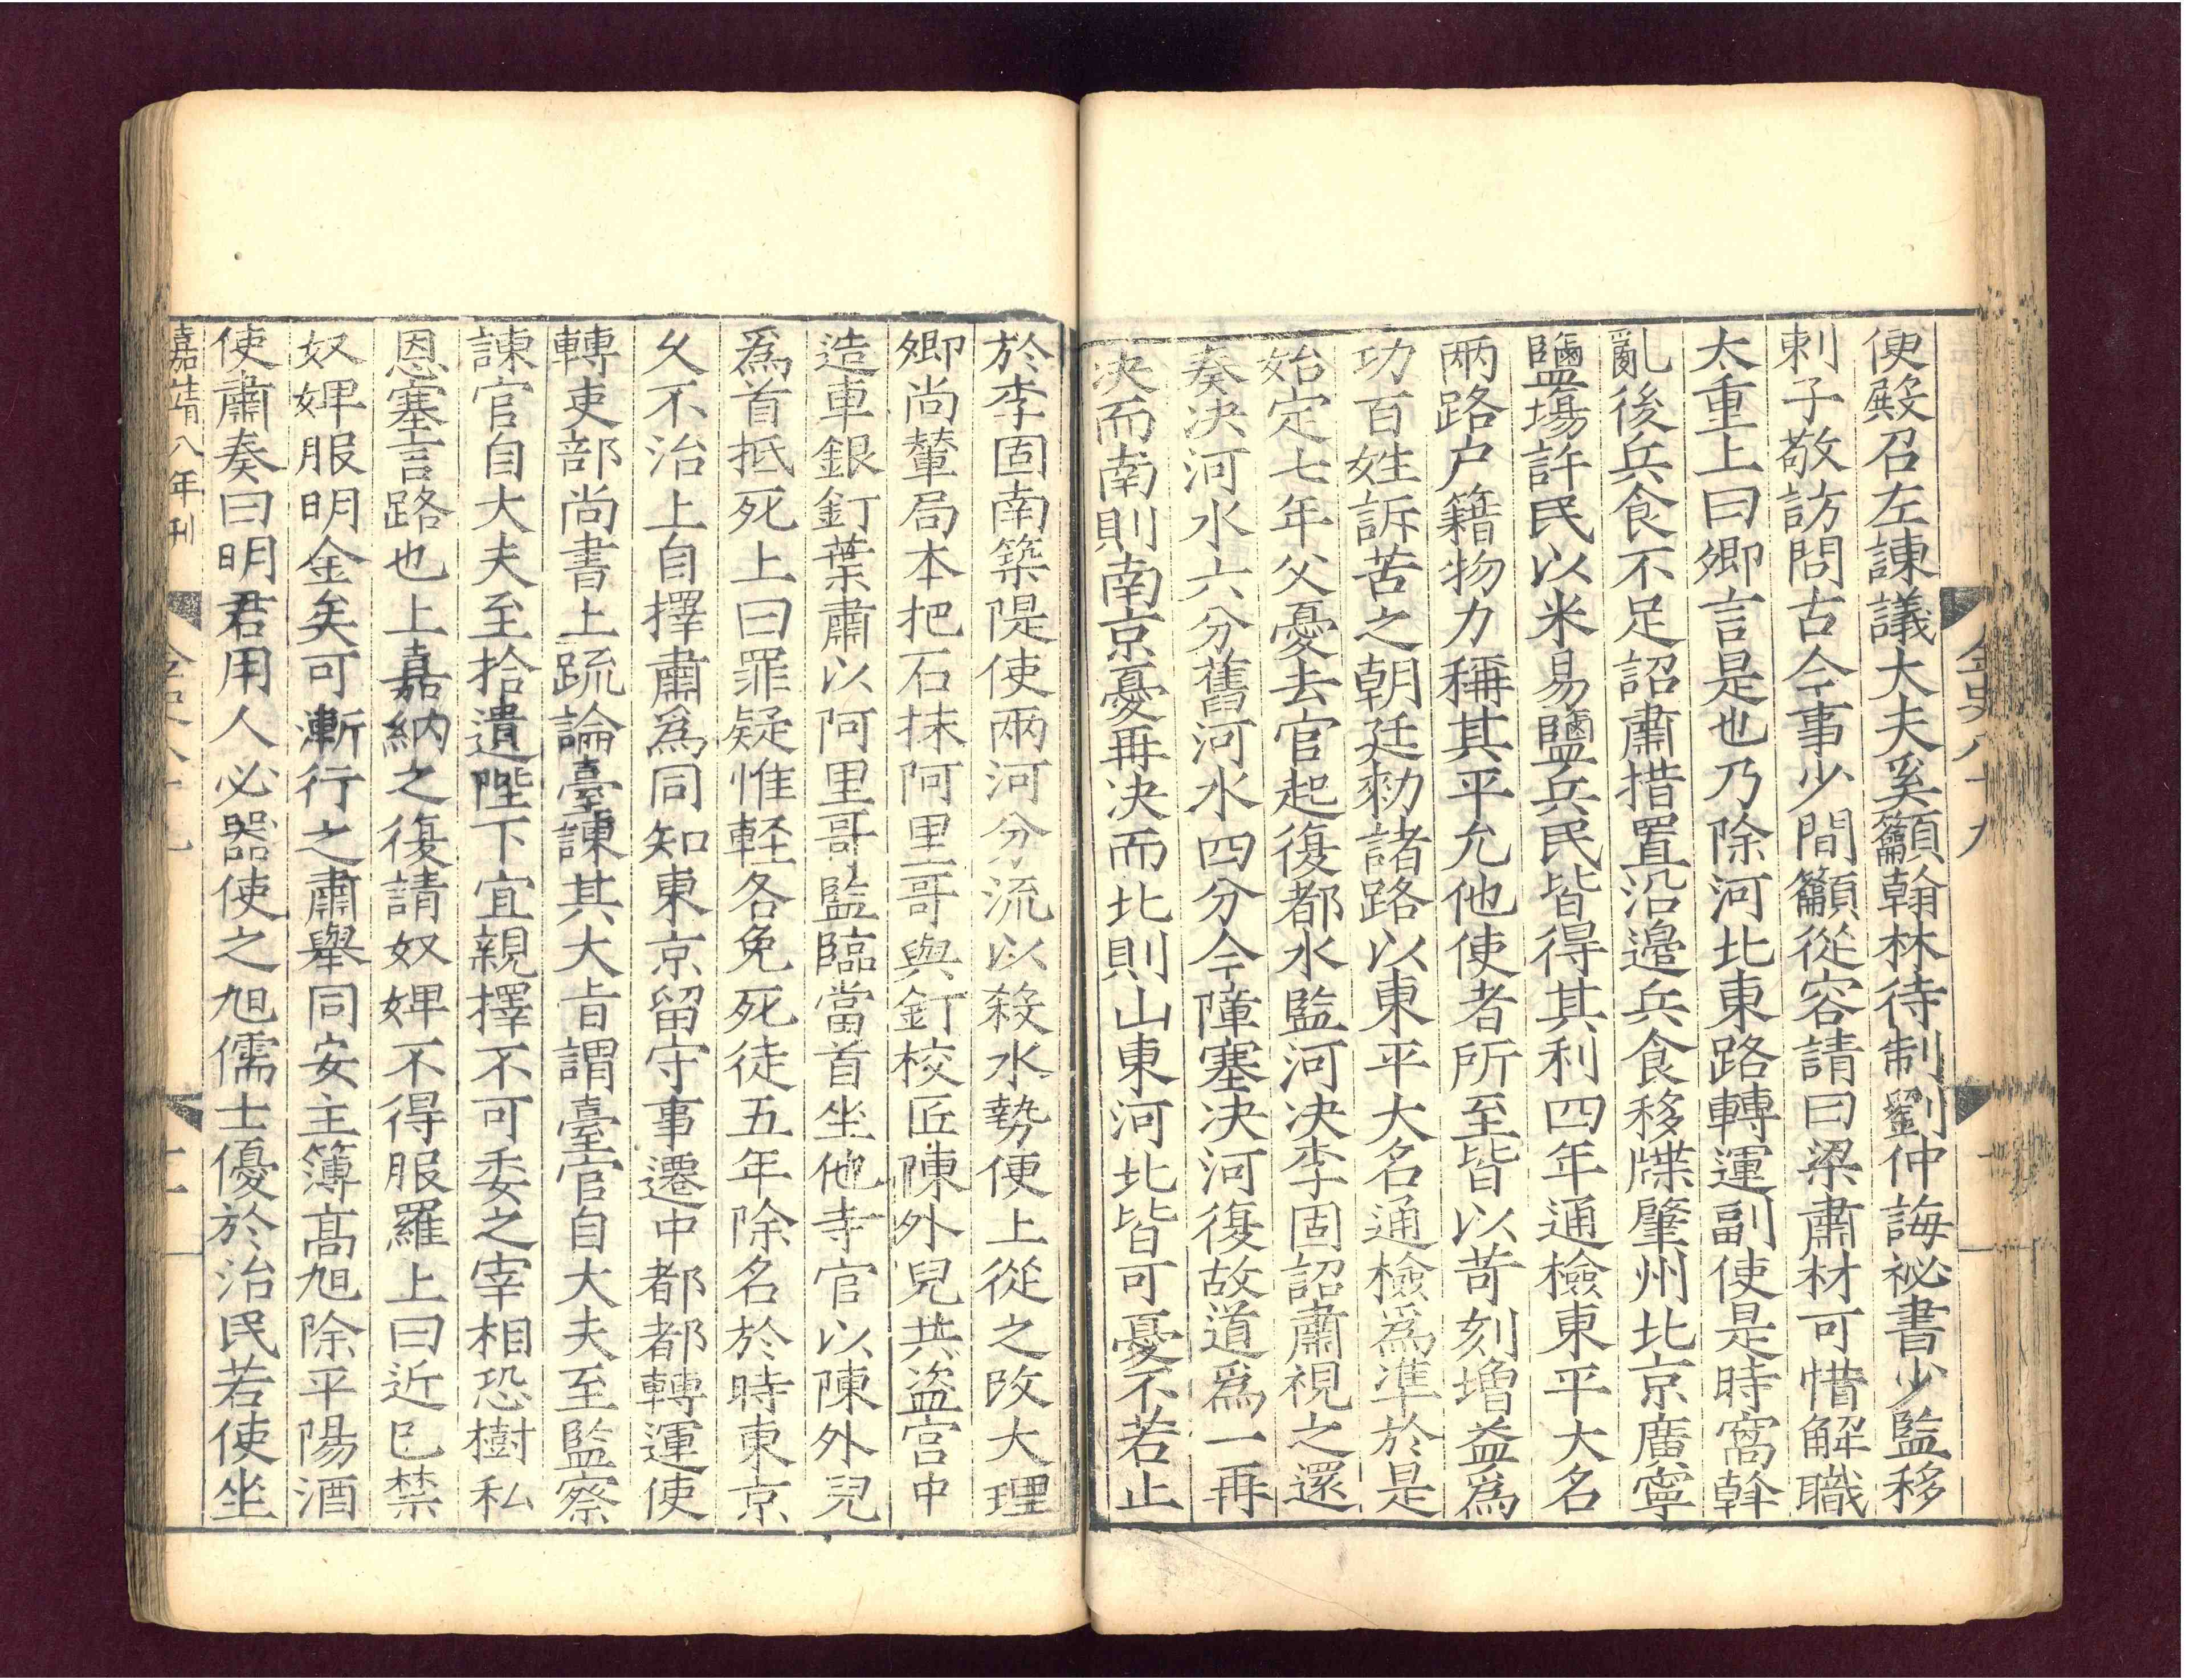 便殿召左諫議大夫奚籲翰林待制劉仲誨祕書少監移
剌子敬訪問古今事少間籲從容請曰梁肅材可惜解職
太重上曰卿言是也乃除河北東路轉運副使是時窩斡
亂後兵食不足詔肅措置沿邊兵食移牒肇州北京廣寧
鹽場許民以米易鹽兵民皆得其利四年通檢東平大名
兩路户籍物力稱其平允他使者所至皆以苛刻增益爲
功百姓訴苦之朝廷勑諸路以東平大名通檢爲準於是
始定七年父憂去官起復都水監河决李固詔肅視之還
奏决河水六分舊河水四分今障塞决河復故道爲一再
决而南則南京憂再决而北則山東河北皆可憂不若止
金史八十九
於李固南築隄使兩河分流以殺水勢便上從之改大理
卿尚輦局本把石抹阿里哥與釘校匠陳外兒共盗宫中
造車銀釘葉肅以阿里哥監臨當首坐他寺官以陳外兒
爲首抵死上曰罪疑惟輕各免死徒五年除名於時東京
久不治上自擇肅爲同知東京留守事遷中都都轉運使
轉吏部尚書上疏論臺諫其大㫖謂臺官自大夫至監察
諫官自大夫至拾遺陛下宜親擇不可委之宰相恐樹私
恩塞言路也上嘉納之復請奴婢不得服羅上曰近已禁
奴婢服明金矣可漸行之肅舉同安主簿高旭除平陽酒
使肅奏曰明君用人必器使之旭儒士優於治民若使坐
嘉靖八年刊